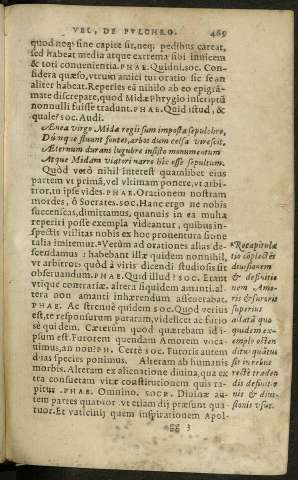 VEL, DE PVLCHRO. 469
quod neq; sine capite sit, neq; pedibus careat,
sed habeat media atque extrema sibi inuicem
& toti conuenientia. PHAE. Quidni. SOC. Con-
sidera quæso, vtrum amici tui oratio sic se an
aliter habeat. Reperies eã nihilo ab eo epigrã-
mate discrepare, quod Midæ Phrygio inscriptũ
nonnulli fuisse tradunt. PHAE. Quid istud, &
quale? SOC. Audi.
Ænea virgo Midæ regis sum imposta sepulchro,
Dũ neque fluunt fontes, arbos dum celsa virescit,
Æternum durans lugubre insisto monumentum
Atque Midam viatori narro hîc esse sepultum.
Quòd verò nihil interest quamlibet eius
partem vt primã, vel vltimam ponere, vt arbi-
tror, tu ipse vides. PHAE. Orationem nostram
mordes, ô Socrates. SOC. Hanc ergo ne nobis
succenseas, dimittamus, quanuis in ea multa
reperiri posse exempla videantur, quibus in-
spectis vtilitas nobis ex hoc ponentura si one
talia imitemur. * Verùm ad orationes alias de-
scendamus: habebant illæ quidem nonnihil,
vt arbitror quod à viris dicendi studiosis sit
obseruandum. PHAE. Quid istud? SOC. Erant
vtique contrariæ. altera siquidem amanti. al-
tera non amanti inhærendum asseuerabat.
PHAE. Ac strenuè quidem SOC. Quod verius
est, te responsurum putaram, videlicet ac furio
sè quidem. Cæterùm quod quærebam id i-
psum est. Furorem quendam Amorem voca-
uimus, an non? PH. Certè SOC. Furoris autem
duas species ponimus. Alteram ab humanis
morbis. Alteram ex alienatione diuina, qua ex
tra consuetam vitæ constitutionem quis ra-
pitur. PHAE. Omnino. SOCR. Diuinæ au-
tem partes quatuor. vt etiam dij præsunt qua
tuor. Et vaticinij quem inspirationem Apol-
gg 3
* Recapitula
tio cõplectẽs
diuisionem
& definitio
nem Amo-
ris & furoris
superius
allatã qua
quidem ex-
emplo osten
ditur quatus
sit in rebus
rectè traden
dis definitio
nis & diui-
sionis vsus.